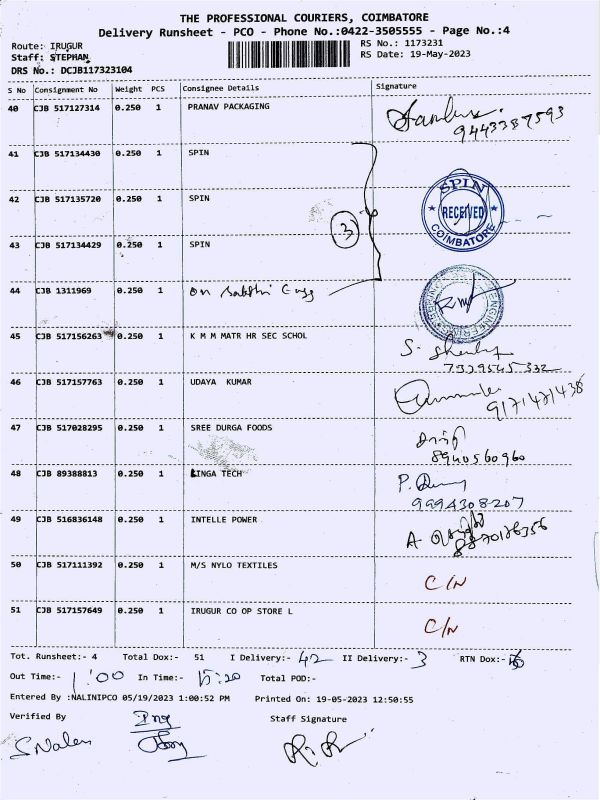 THE PROFESSIONAL COURIERS, COIMBATORE
Delivery Runsheet - PCO - Phone No.:0422-3505555 - Page No.:4
Route: IRUGUR RS No.: 1173231
Staff: STEPHAN RS Date: 19-May-2023
DRS No.: DCJB117323104
S No Consignment No Weight PCS Consignee Details Signature
40 CJB 517127314 0.250 1 PRANAV PACKAGING
9443387593
41 CJB 517134430 0.250 1 SPIN
42 CJB 517135720 0.250 1 SPIN
SPIN RECEIVED COIMBATORE
43 CJB 517134429 0.250 1 SPIN
3
44 CJB 1311969 0.250 1 Om Sakthi Engg
45 CJB 517156263 0.250 1 K M M MATR HR SEC SCHOL
7339545332
46 CJB 517157763 0.250 1 UDAYA KUMAR
9171421438
47 CJB 517028295 0.250 1 SREE DURGA FOODS
8940560960
48 CJB 89388813 0.250 1 LINGA TECH
9994308207
49 CJB 516836148 0.250 1 INTELLE POWER
8870126356
50 CJB 517111392 0.250 1 M/S NYLO TEXTILES
C/N
51 CJB 517157649 0.250 1 IRUGUR CO OP STORE L
C/N
Tot. Runsheet:- 4 Total Dox:- 51 I Delivery:- 42 II Delivery:- 3 RTN Dox:-
Out Time:- 1:00 In Time:- 15:20 Total POD:-
Entered By :NALINIPCO 05/19/2023 1:00:52 PM Printed On: 19-05-2023 12:50:55
Verified By Staff Signature